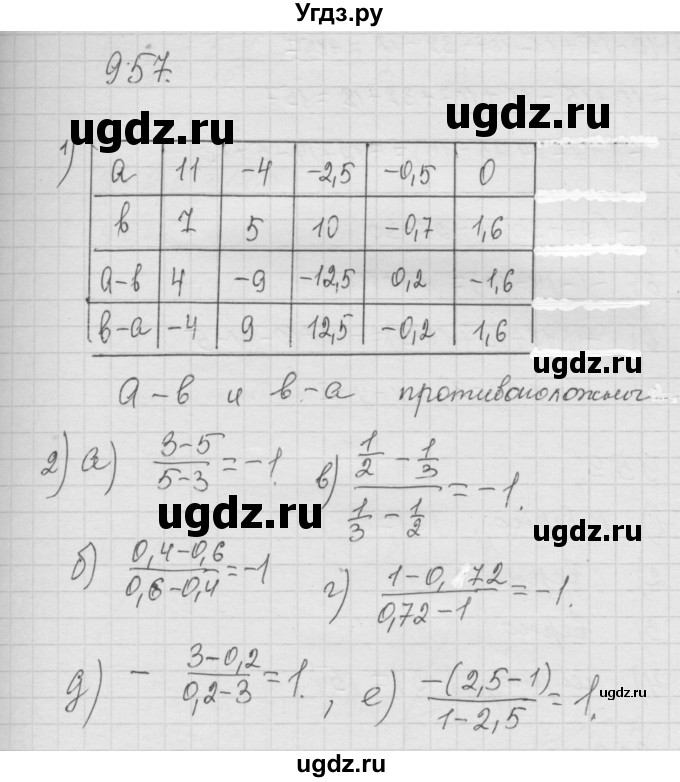 Угдз.ру
957.
ugdz.ru ugdz.ru
1)
а 11 -4 -2,5 -0,5 0
в 7 5 10 -0,7 1,6
а-в 4 -9 -12,5 0,2 -1,6
в-а -4 9 12,5 -0,2 1,6
ugdz.ru
А-в и в-а противоположны
2) а) (3-5)/(5-3) = -1. в) (1/2 - 1/3)/(1/3 - 1/2) = -1.
ugdz.ru ugdz.ru
б) (0,4-0,6)/(0,6-0,4) = -1 г) (1-0,72)/(0,72-1) = -1.
д) - (3-0,2)/(0,2-3) = 1. , е) (-(2,5-1))/(1-2,5) = 1.
ugdz.ru
ugdz.ru